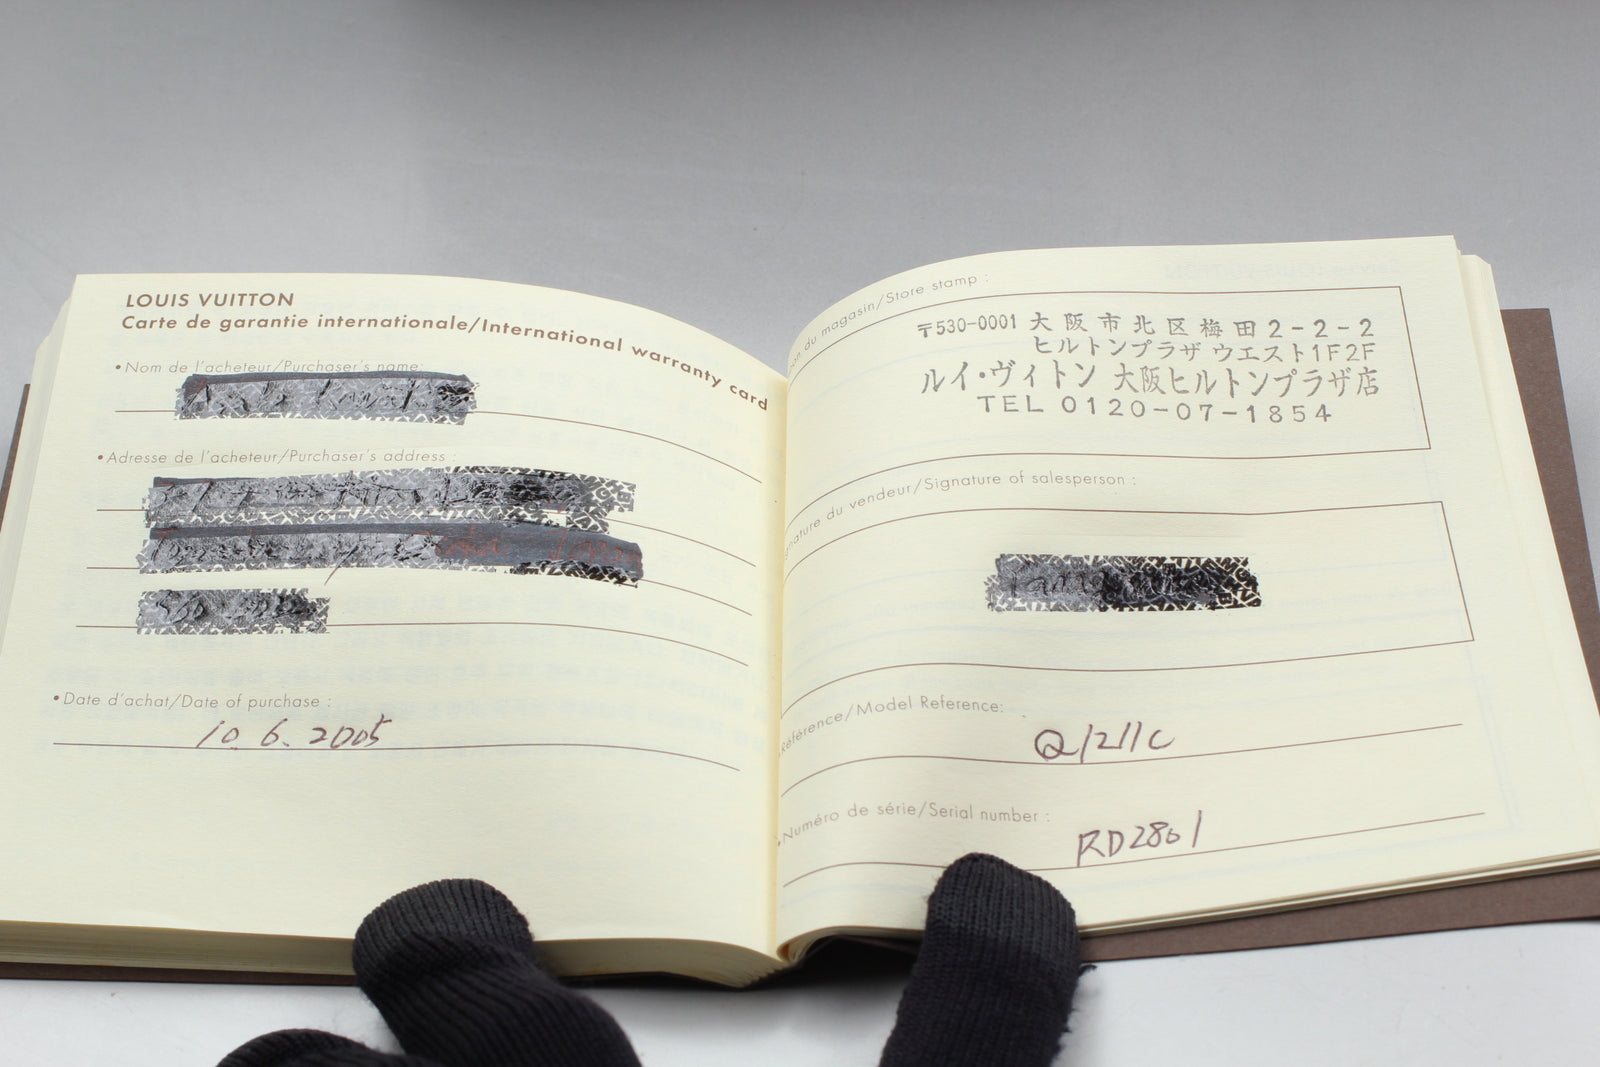 LOUIS VUITTON
Carte de garantie internationale/International warranty card
•Nom de l'acheteur/Purchaser's name:
•Adresse de l'acheteur/Purchaser's address :
•Date d'achat/Date of purchase :
10. 6. 2005
du magasin/Store stamp :
〒530-0001 大阪市北区梅田2-2-2
ヒルトンプラザ ウエスト1F2F
ルイ・ヴィトン 大阪ヒルトンプラザ店
TEL 0120-07-1854
du vendeur/Signature of salesperson :
Référence/Model Reference:
Q1211C
•Numéro de série/Serial number :
RD2801